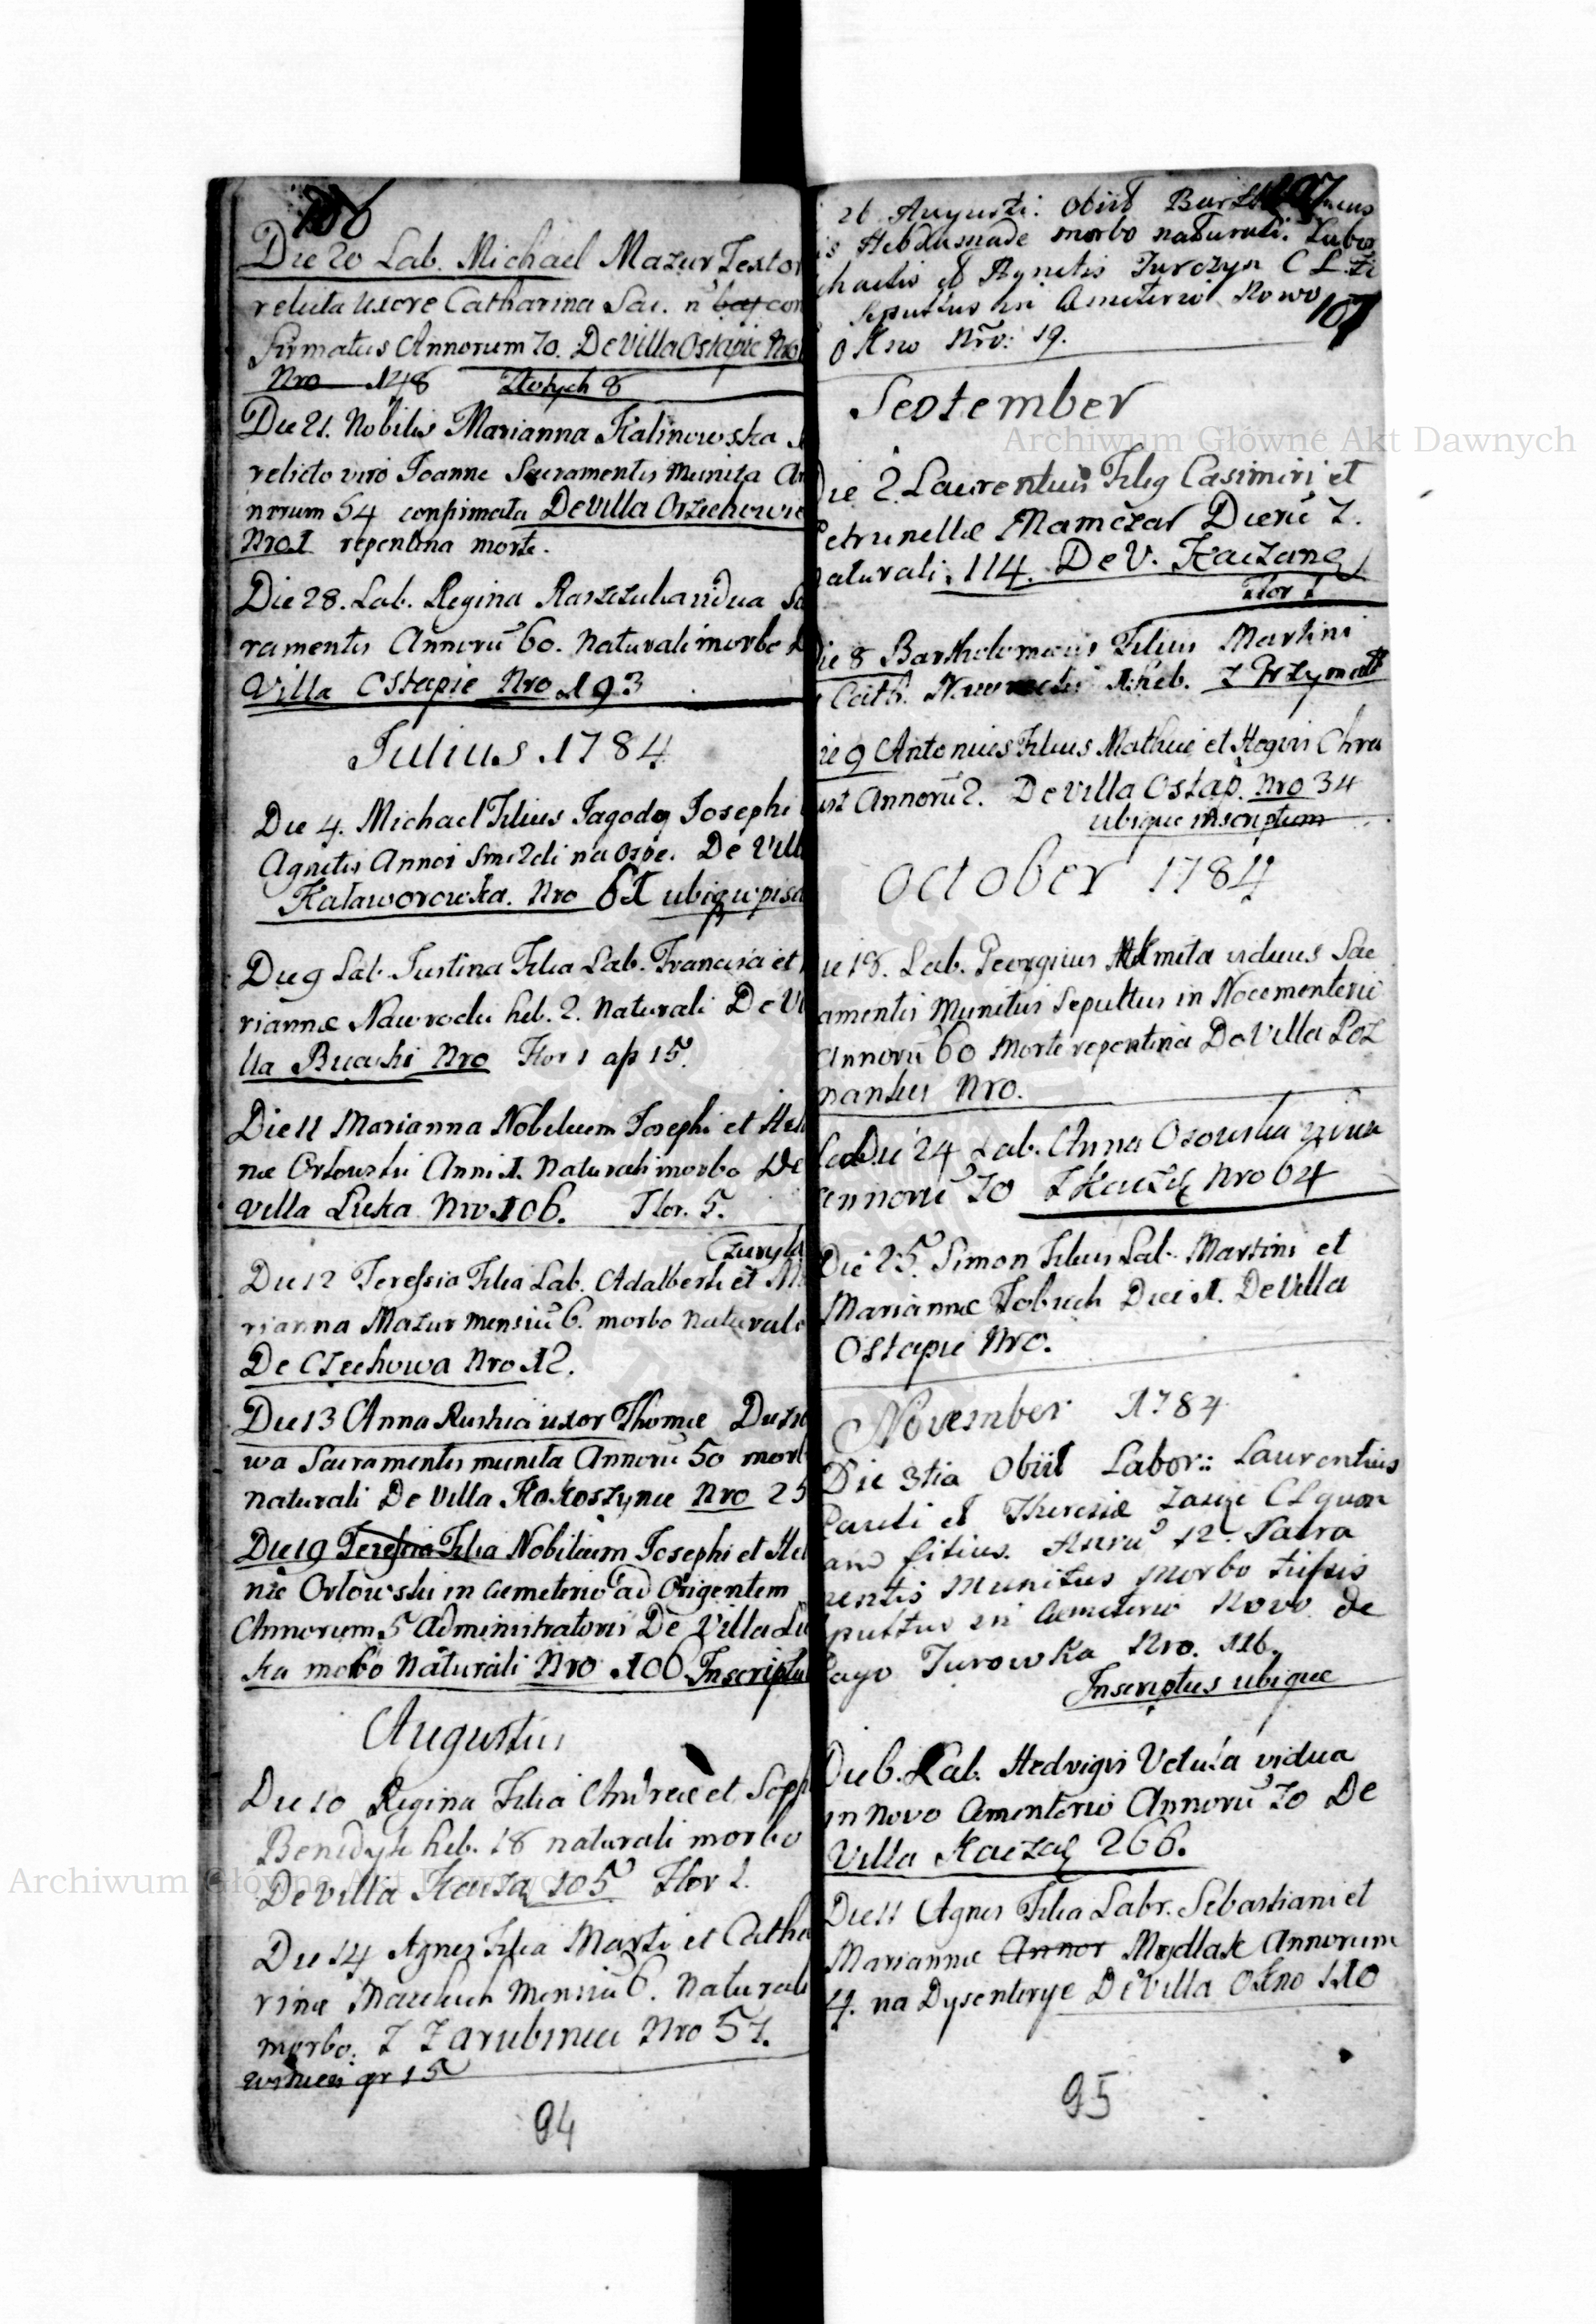 106
Die 20 Lab. Michael Mazur Textor
relicta Uxore Catharina Sac. n con
firmatus Annorum 70. De Villa Ostapie Nro
Nro 148 Złotych 8
Die 21. Nobilis Marianna Kalinowska
relicto viro Joanne Sacramentis Munita An
norum 54 confirmata De Villa Orzechowie
Nro 1 repentina morte.
Die 28. Lab. Regina vidua Sa
ramentis Annorū 60. Naturali morbo D
Villa Ostapie Nro 193
Julius 1784
Die 4. Michael Filius Jagody Josephi
Agnetis Anno 1 Smerdi na ospe. De Vill
Kaławorowka. Nro 61 ubique pisa
Die 9 Lab. Justina Filia Lab. Francisci et
riannæ Nawrocki heb. 2. Naturali De Vi
lla Bucyki Nro Flor 1 ap 15
Die 11 Marianna Nobilium Josephi et Hele
næ Orłowski Anni 1. Naturali morbo De
villa Luka Nro 106. Flor. 5.
Czuryło
Die 12 Teressia Filia Lab. Adalberti et Ma
rianna Mazur mensiū 6. morbo Naturale
De Czechowa Nro 12.
Die 13 Anna Rustica uxor Thomæ
wa Sacramentis munita Annorū 50 morb
naturali De Villa Kokoszynce Nro 25
Die 19 Teressia Filia Nobilium Josephi et Hel
næ Orłowski in Cæmeterio ad Origentem
Annorum 5 Administratoris De Villa Lu
ka morbo Naturali Nro 106 Inscriptu
Augustus
Die 10 Regina Filia Andreæ et Soph
Benedyk heb. 18 naturali morbo
De Villa 105 Flor 1.
Die 14 Agnes Filia Marti et Catha
rinæ Mensiū 6. Naturali
morbo. Z Zarubiniec Nro 57.
gr 15
94
26 Augusti: Obiit
is Hebdomade morbo naturali. Labor
chaelis et Agnetis Jurczyn C L
Sepultus in Cæmeterio Nowo
107
Okno Nro: 19.
September
Die 2 Laurentius Filig Casimiri et
Petrunellæ Mamczar Dierū 7.
Naturali. 114. De V.
Flor 1
Die 8 Bartholomæus Filius Martini
Cath. heb.
ie 9 Antonius Filius Mathiæ et Regin Chra
ust Annorū 2. De villa Ostap. Nro 34
ubique inscriptum
October 1784
ie 18. Lab. Georgius Kmita viduus Sac
ramentis Munitus Sepultus in No cementerio
Annorū 60 Morte repentina De Villa Poz
nanka Nro.
Die 24 Lab. Anna Osowska
annorū 70 Nro 64
Die 25. Simon Filius Lab. Martini et
Mariannæ Diei 1. De Villa
Ostapie Nro.
November 1784
Die 3tia Obiit Labor:: Laurentius
Pauli et Theresiæ
filius. Anorū 12. Sacra
mentis Munitus Morbo tussis
Sepultus in Cæmeterio Novo de
Pago Turowka Nro. 116.
Inscriptus ubique
Die 6. Lab. Hedvigis vidua
in Novo Cementerio Annorū 70 De
Villa 266.
Die 11 Agnes Filia Labr. Sebastiani et
Mariannæ Annor Mydlak Annorum
4. na Dysenterye De Villa Okno 110
95
Archiwum Główne Akt Dawnych
Archiwum Główne Akt Dawnych